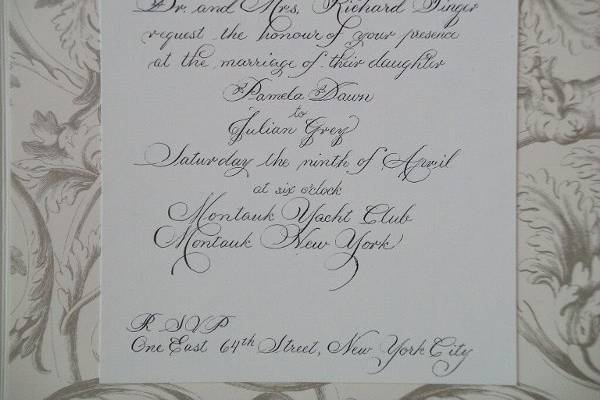 Dr. and Mrs. Richard Singer
request the honour of your presence
at the marriage of their daughter
Pamela Dawn
to
Julian Grey
Saturday the ninth of April
at six o'clock
Montauk Yacht Club
Montauk New York
R SVP
One East 64th Street, New York City